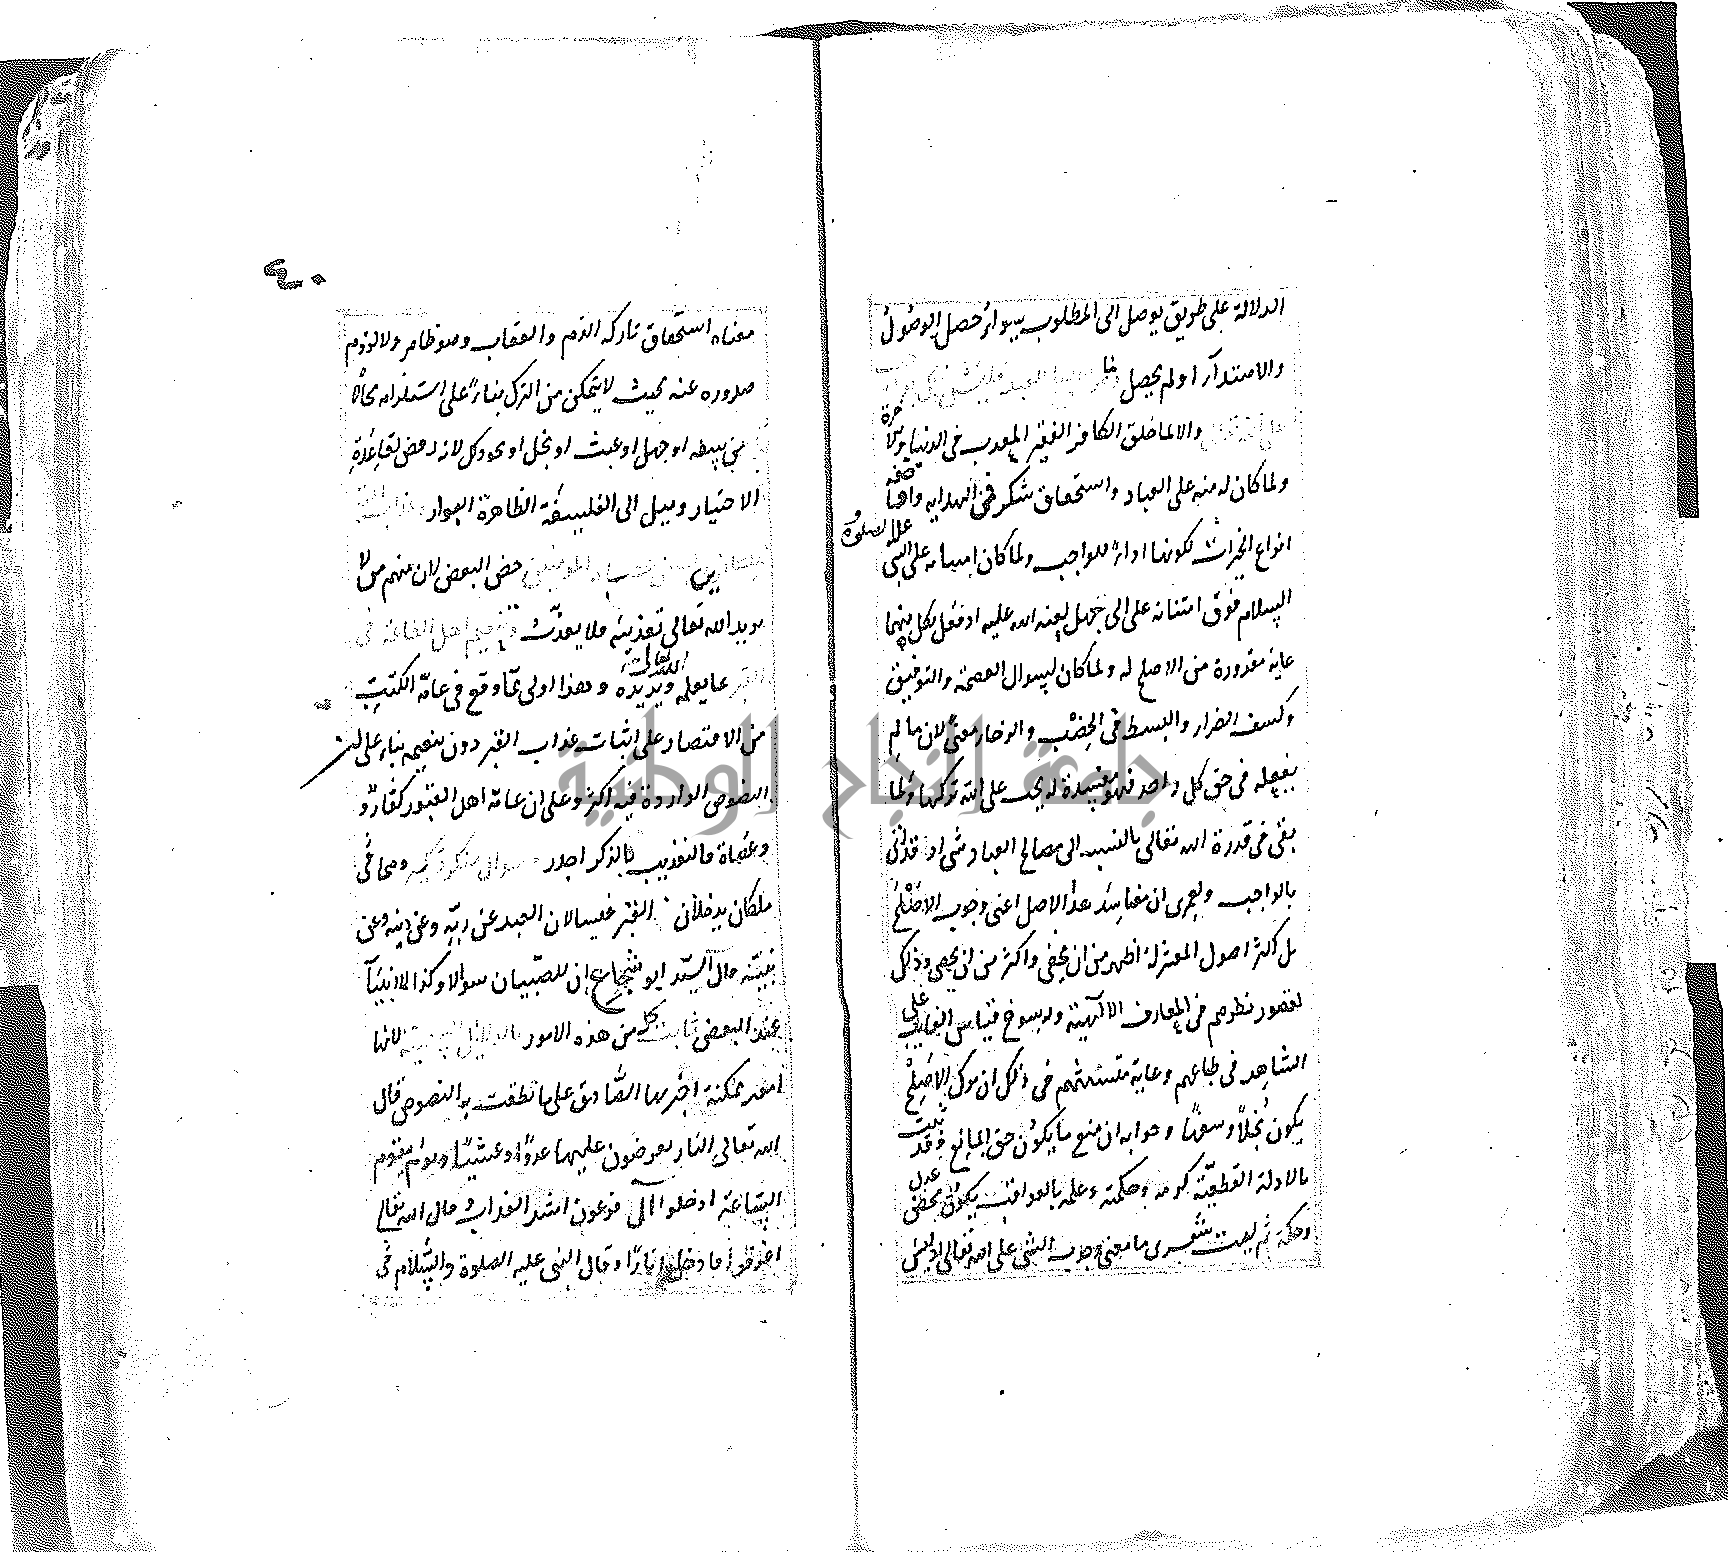 الدلالة على طريق يوصل الى المطلوب سواء حصل الوصول
والاهتداء او لم يحصل وما
والا لما خلق الكافر الفقير المعذب فى الدنيا والآخرة
ولما كان له منه على العباد واستحقاق شكر فى الهداية وافاضة
انواع الخيرات لكونها اداء للواجب ولما كان امتنانه على النبى عليه الصلوة
السلام فوق امتنانه على ابى جهل لعنه الله عليه اذ فعل بكل منهما
غاية مقدوره من الاصلح له ولما كان لسوال العصمة والتوفيق
وكشف الضراء والبسط فى الخصب والرخاء معنى لان ما لم
يفعله فى حق كل واحد فهو مفسدة له يجب على الله تركها ولما
بقى فى قدرة الله تعالى بالنسبة الى مصالح العباد شى اذ قد اتى
بالواجب ولعمرى ان مفاسد هذا الاصل اعنى وجوب الاصلح
بل اكثر اصول المعتزلة اظهر من ان يخفى واكثر من ان يحصى وذلك
لقصور نظرهم فى المعارف الالهية ورسوخ قياس الغايب على
الشاهد فى طباعهم وغاية تشبثهم فى ذلك ان ترك الاصلح
يكون بخلا وسفها وجوابه ان منع ما يكون حق المانع وقد ثبت
بالادلة القطعية كرمه وحكمته وعلمه بالعواقب يكون محض عدل
وحكمة ثم ليت شعرى ما معنى وجوب الشى على الله تعالى اذ ليس
٤٠
معناه استحقاق تاركه الذم والعقاب وهو ظاهر ولا لزوم
صدوره عنه بحيث لا يتمكن من الترك بناء على استلزامه محالا
من سفه او جهل او عبث او بخل او نحو ذلك لانه رفض لقاعدة
الاختيار وميل الى الفلسفة الظاهرة العوار
خص البعض لان منهم من لا
يريد الله تعالى تعذيبه فلا يعذب وتنعيم اهل الطاعة فى
القبر بما يعلمه الله تعالى ويريده وهذا اولى مما وقع فى عامة الكتب
من الاقتصار على اثبات عذاب القبر دون تنعيمه بناء على ان
النصوص الواردة فيه اكثر وعلى ان عامة اهل القبور كفار و
وعصاة فالتعذيب بالذكر اجدر وسوال منكر ونكير وهما
ملكان يدخلان القبر فيسالان العبد عن ربه وعن دينه وعن
نبيه قال السيد ابو شجاع ان للصبيان سوالا وكذا للانبياء
عند البعض ثابت كل من هذه الامور بالدلايل السمعية لانها
امور ممكنة اخبر بها الصادق على ما نطقت به النصوص قال
الله تعالى النار يعرضون عليها غدوا وعشيا ويوم تقوم
الساعة ادخلوا آل فرعون اشد العذاب وقال الله تعالى
اغرقوا فادخلوا نارا وقال النبى عليه الصلوة والسلام فى
جامعة النجاح الوطنية